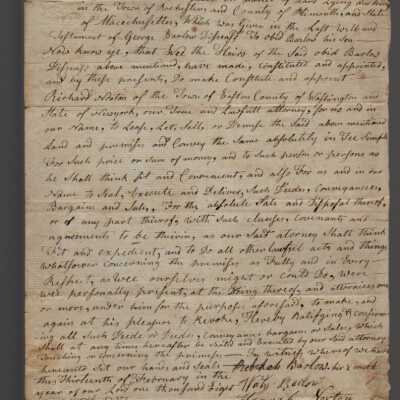 in the Town of Rochester and County of Plimouth, and State
of Messechusettes, Which was Given in the Last Will and
Testement of George Barlow Diseast To obid Barlow his Son
Now know ye, that Wee the Heirs of the Said obid Barlow
Diseast above mentiand, have made, constituted and appointed,
and by these presents, Do make Constitute and appoint
Richard Norton of the Town of Easton County of Washington and
State of Newyork, our True and Lawfull attorney, for us and in
our Name, to Lease, Let, Sell, or Demise the Said above mentioned
Land and premises and Convey the Same absolutely in Fee Simple
For Such price or Sum of money, and to Such person or persons as
he Shall think fit and Convenient, and also For us and in our
Name to Seal, Execute and Deliver, Such Deeds, Conveyances,
Bargains and Sales, For the absolute Sale and Disposal thereof,
or of any part thereof, with Such clauses, Covenants and
agreements to be therin, as our Said attorney Shall think
Fit and expedient, and to Do all other lawfull acts and things
Whatsoever Concerning the premises as Fully and in Every
Respect, as wee ourselves might or Could Do, were
wee personally present, at the Doing thereof, and attorneies one
or more, under him for the purpose aforesaid, to make, and
again at his pleasure to Revoke, Hereby Ratifying & Confirm
ing all Such Deeds or Deeds, Conveyance bargains or Sales, which
Shall at any time hereafter be Said and Executed by our Said attorney
Touching or Concerning the premises — In witness whereof we have
hereunto Set our hands and Seals Rebekah Barlow her mark
this Thirteenth of February in the
year of our Lord one thousand Eight Barlow
Norton